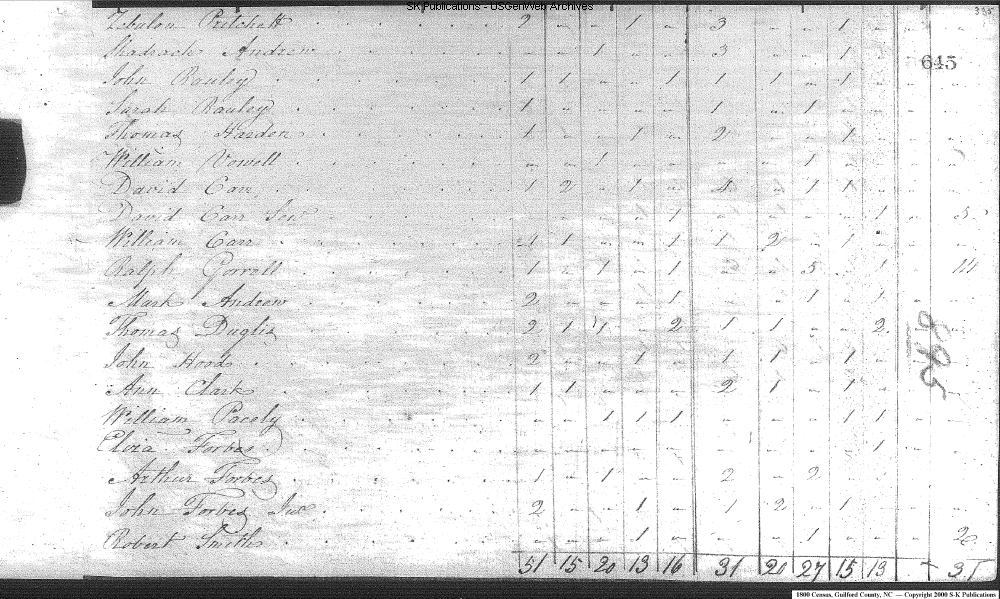 SK Publications - USGenWeb Archives
Zebulon Pritchett 2 - - 1 - 3 - - 1 - - -
645
Shadrach Andrew - - 1 - - 3 - - 1 - - -
John Rauley 1 1 - - 1 1 1 - 1 - - -
Sarah Rauley 1 - - - - 1 - 1 - - - -
Thomas Harden 1 - - 1 - 2 - - 1 - - -
William Vowell - - 1 - - - - 1 - - - -
David Carr 1 2 - 1 - 4 - 1 1 - - -
David Carr Sen - - - - 1 - - - - 1 - 5
William Carr 1 1 - - 1 1 2 - 1 - - -
Ralph Gorrell 1 - 1 - 1 - 5 1 - 14
Mark Andrew 2 - - - 1 - - 1 - 1 - -
Thomas Duglis 2 1 1 - 2 1 1 - - 2 - -
John Hoods 2 - - 1 - 1 1 - 1 - - -
Ann Clark 1 1 - - - 2 1 - 1 - - -
William Pacely - - 1 1 1 - - - 1 1 - -
Eliza Forbes - - - - - - - - - 1 - -
Arthur Forbes 1 - 1 - - 2 - 2 - - - -
John Forbes Jur 2 - - 1 - 1 2 - 1 - - -
Robert Smith - - - 1 - - - 1 - - - 2
51 15 20 13 16 31 20 27 15 13 - 31
1800 Census, Guilford County, NC — Copyright 2000 S-K Publications